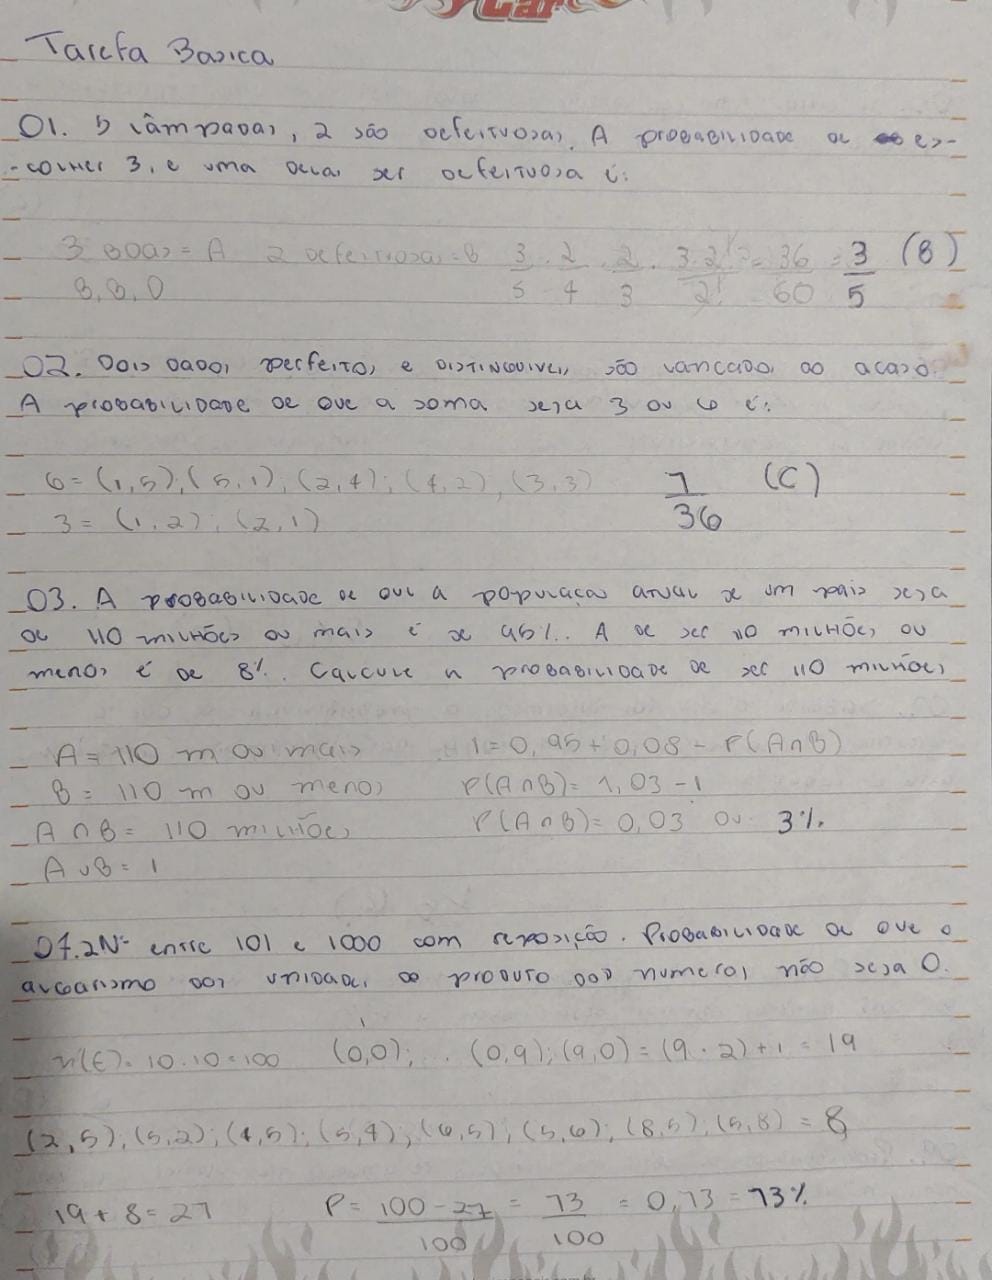 Tarefa Basica
01. 5 lâmpadas, 2 são defeituosas. A probabilidade de es-
-colher 3, e uma delas ser defeituosa é:
3 Boas = A 2 defeituosa = B 3/5 . 2/4 . 2/3 . 3.2!/2! = 36/60 = 3/5 (B)
B, B, D
02. Dois dados perfeitos e distinguiveis são lançados ao acaso.
A probabilidade de que a soma seja 3 ou 6 é:
6 = (1,5); (5,1); (2,4); (4,2), (3,3) 7/36 (C)
3 = (1,2); (2,1)
03. A probabilidade de que a população atual de um pais seja
de 110 milhões ou mais é de 95%. A de ser 110 milhões ou
menos é de 8%. Calcule a probabilidade de ser 110 milhões
A = 110 m ou mais 1 = 0,95 + 0,08 - P(A∩B)
B = 110 m ou menos P(A∩B) = 1,03 - 1
A∩B = 110 milhões P(A∩B) = 0,03 ou 3%.
A∪B = 1
04. 2 Nº entre 101 e 1000 com reposição. Probabilidade de que o
algarismo das unidades do produto dos numeros não seja 0.
n(E) = 10.10 = 100 (0,0); ... (0,9); (9,0) = (9.2) + 1 = 19
(2,5); (5,2); (4,5); (5,4); (6,5); (5,6); (8,5); (5,8) = 8
19 + 8 = 27 P = 100 - 27/100 = 73/100 = 0,73 = 73%